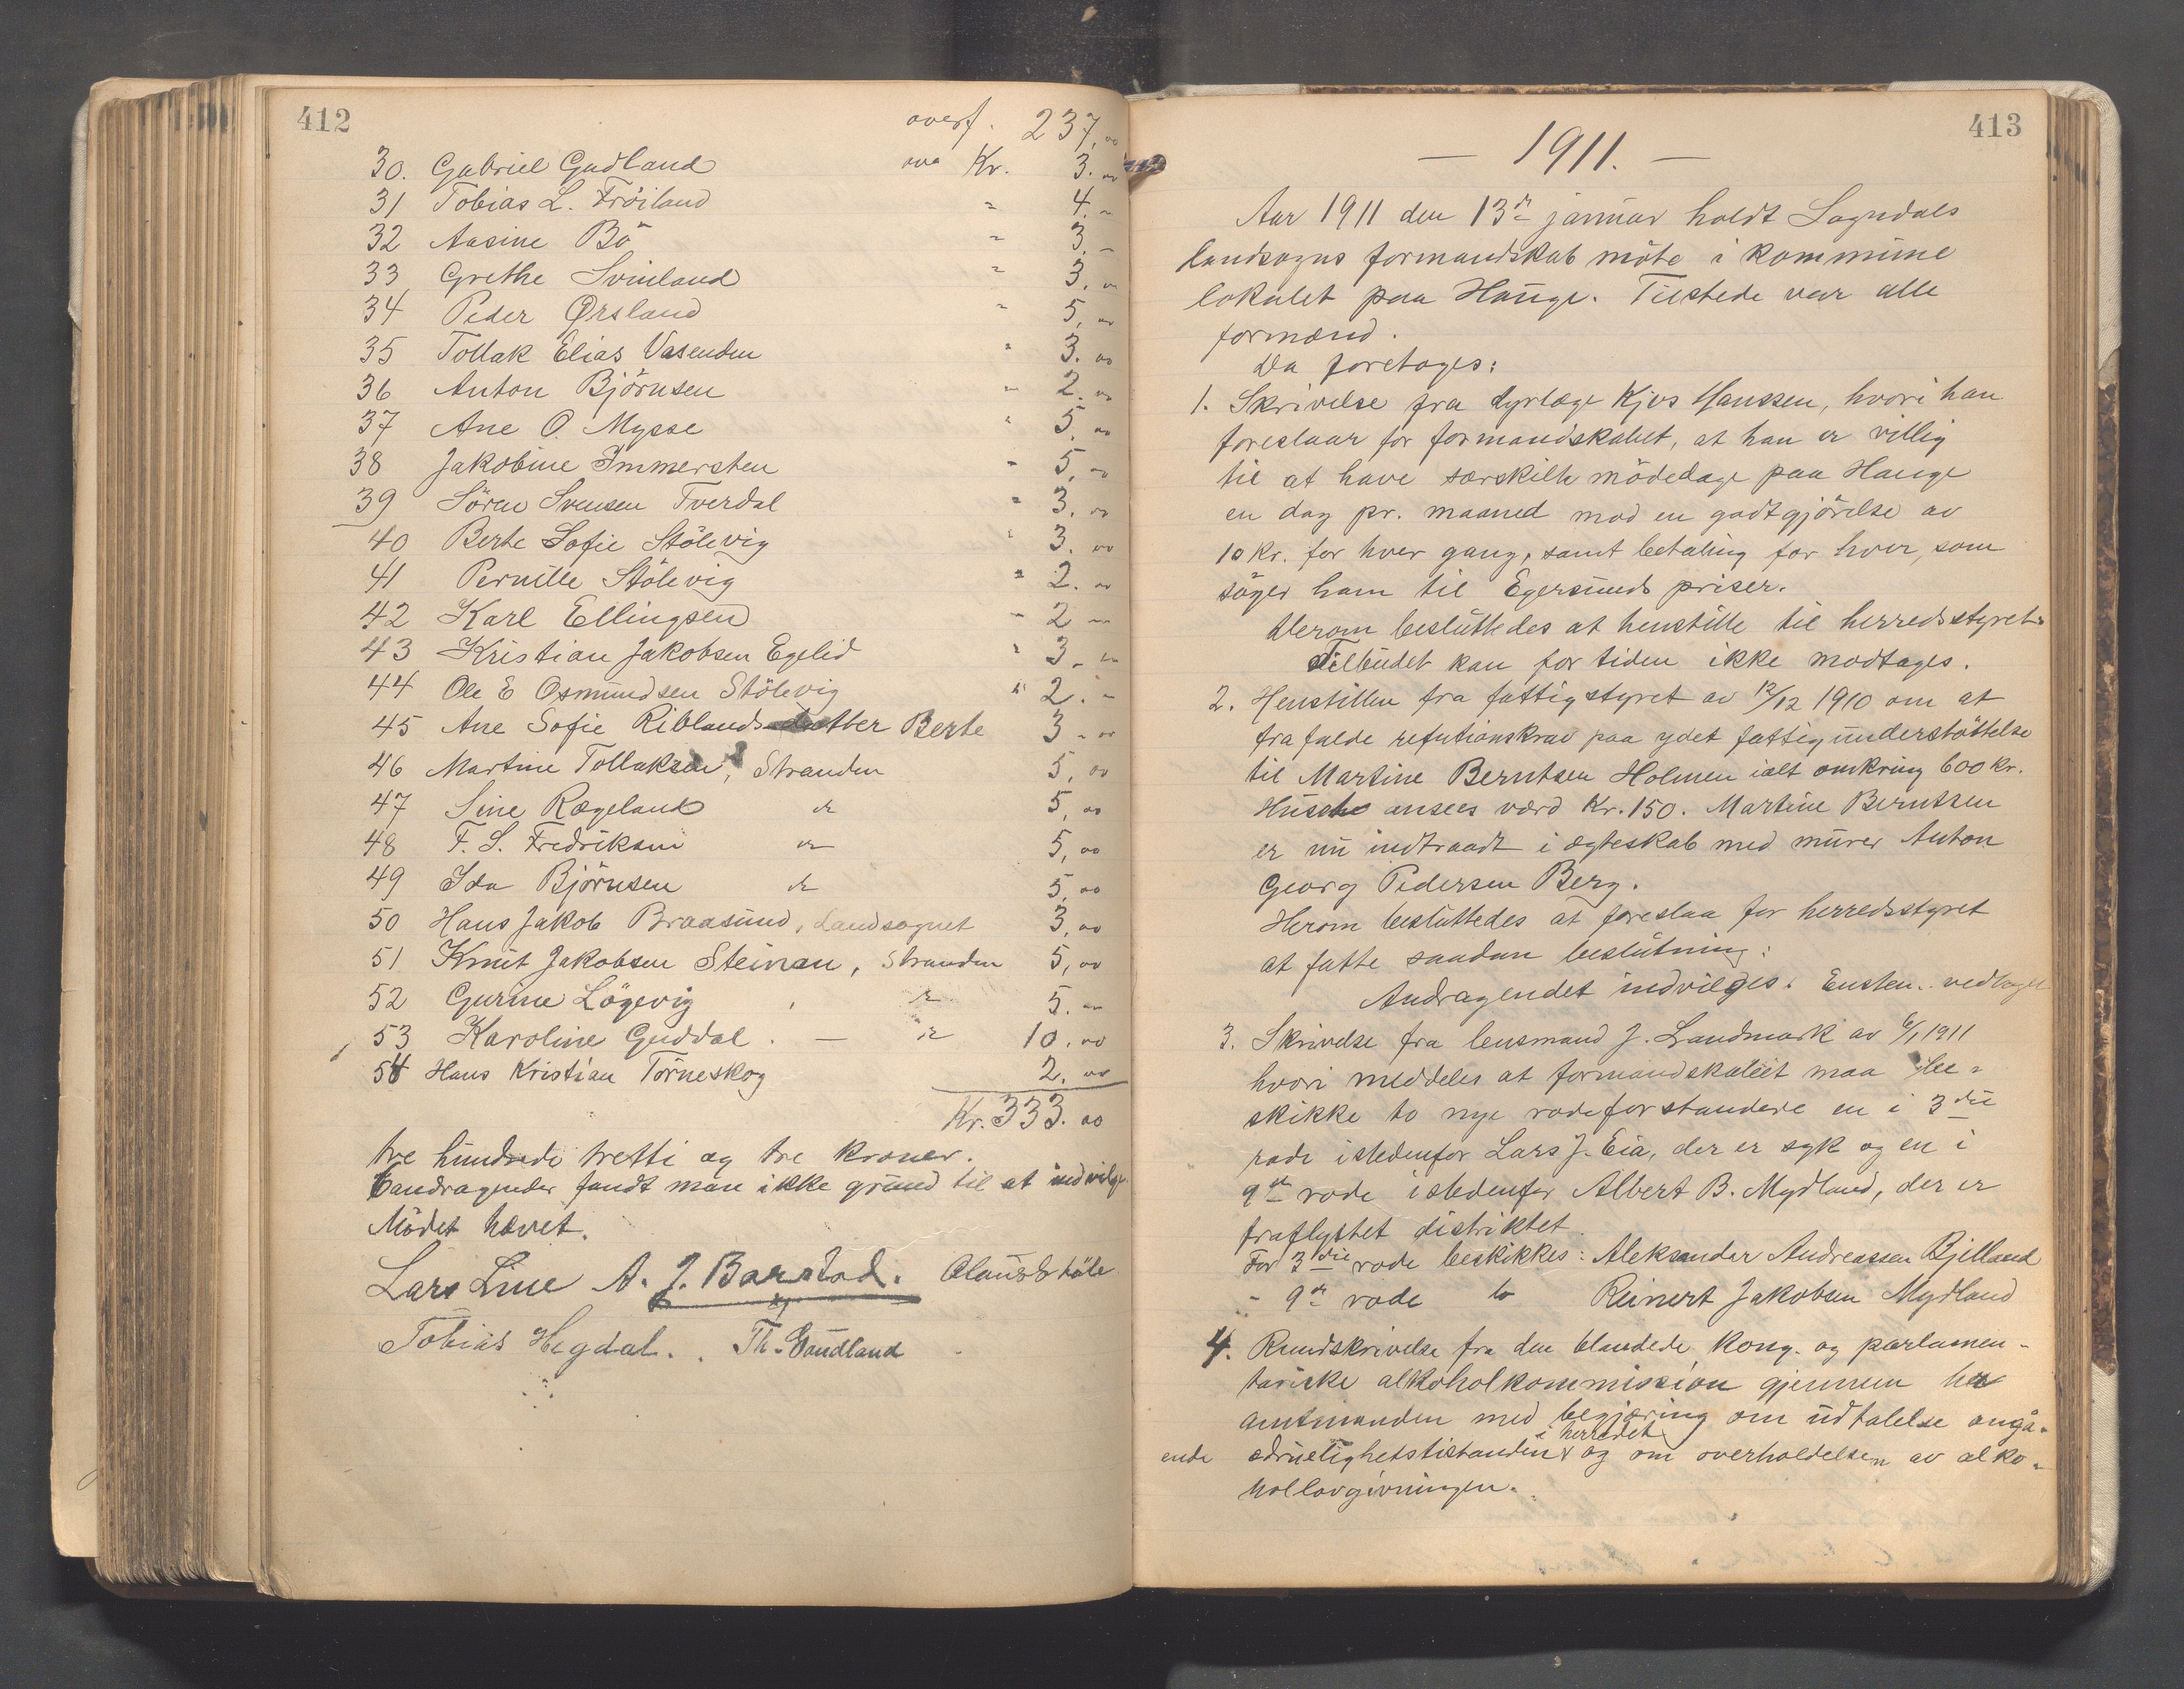 412
overf. 237,00
30. Gabriel Gudland Kr. 3.00
31 Tobias L. Fröiland " 4.-
32 Aasine Bö " 3.-
33 Grethe Svinland " 3.00
34 Peder Ørsland " 5,00
35 Tollak Elias Vasenden " 3.00
36 Anton Björnsen " 2.00
37 Ane O. Mysse " 5,00
38 Jakobine Immersten " 5,00
39 Sören Svensen Tverdal " 3.00
40 Berte Sofie Stölevig " 3.00
41 Pernille Stölevig " 2.00
42 Karl Ellingsen " 2 00
43 Kristian Jakobsen Egelid " 3.00
44 Ole E Osmundsen Stölevig " 2.-
45 Ane Sofie Riblands datter Berte 3.00
46 Martine Tollaksen, Stranden 5,00
47 Sine Rægeland do 5,00
48 F. S. Fredriksen do 5,00
49 Ida Björnsen do 5,00
50 Hans Jakob Braasund, Landsognet 3,00
51 Knut Jakobsen Steinan, Stranden 5,00
52 Gurine Lögevig do 5.00
53 Karoline Guddal . — do 10.00
54 Hans Kristian Törneskog 2.00
Kr. 333.00
tre hundrede tretti og tre kroner.
6 andragender fandt man ikke grund til at indvilge
Mödet hævet.
Lars Line A. J. Barstad. Claus Stöle
Tobias Hegdal. Th. Gaudland
413
— 1911. —
Aar 1911 den 13de januar holdt Sogndals
landsogns formandskab möte i kommune
lokalet paa Hauge. Tilstede var alle
formænd.
Da foretoges:
1. Skrivelse fra dyrlæge Kjos Hanssen, hvori han
foreslaar for formandskabet, at han er villig
til at have særskilte mödedage paa Hauge
en dag pr. maaned mod en godtgjörelse av
10 Kr. for hver gang, samt betaling for hver, som
söger ham til Egersunds priser.
Herom besluttedes at henstille til herredsstyret:
Tilbudet kan for tiden ikke modtages.
2. Henstillen fra fattigstyret av 12/12 1910 om at
frafalde refutionskrav paa ydet fattigunderstöttelse
til Martine Berntsen Holmen ialt omkring 600 kr.
Huset ansees værd Kr. 150. Martine Berntsen
er nu indtraadt i ægteskab med murer Anton
Georg Pedersen Berg.
Herom besluttedes at foreslaa for herredsstyret
at fatte saadan beslutning:
Andragendet indvilges. Enstem. vedtaget
3. Skrivelse fra lensmand J. Landmark av 6/1 1911
hvori meddeles at formandskabet maa be-
skikke to nye rodeforstandere en i 3die
rode istedenfor Lars J. Eia, der er syk og en i
9de rode istedenfor Albert B. Mydland, der er
fraflyttet distriktet.
For 3die rode beskikkes: Aleksander Andreassen Bjelland
- 9de rode do Reinert Jakobsen Mydland
4. Rundskrivelse fra den blandede kong. og parlamen-
tariske alkoholkommission gjennem hr
amtmanden med begjæring om udtalelse angå-
ende ædruelighetstilstanden i herredet og om overholdelsen av alko-
hollovgivningen.